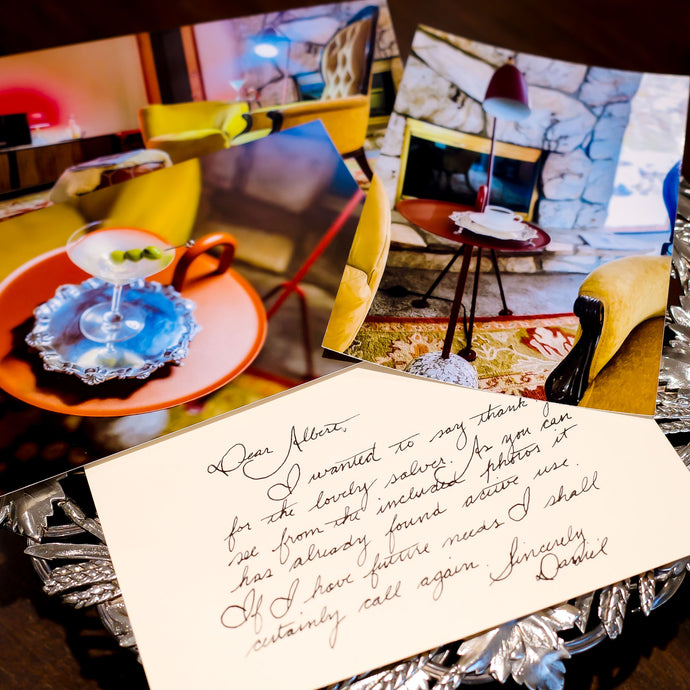 Dear Albert,
I wanted to say thank
for the lovely salver. As you can
see from the included photos it
has already found active use.
If I have future needs I shall
certainly call again. Sincerely
Daniel